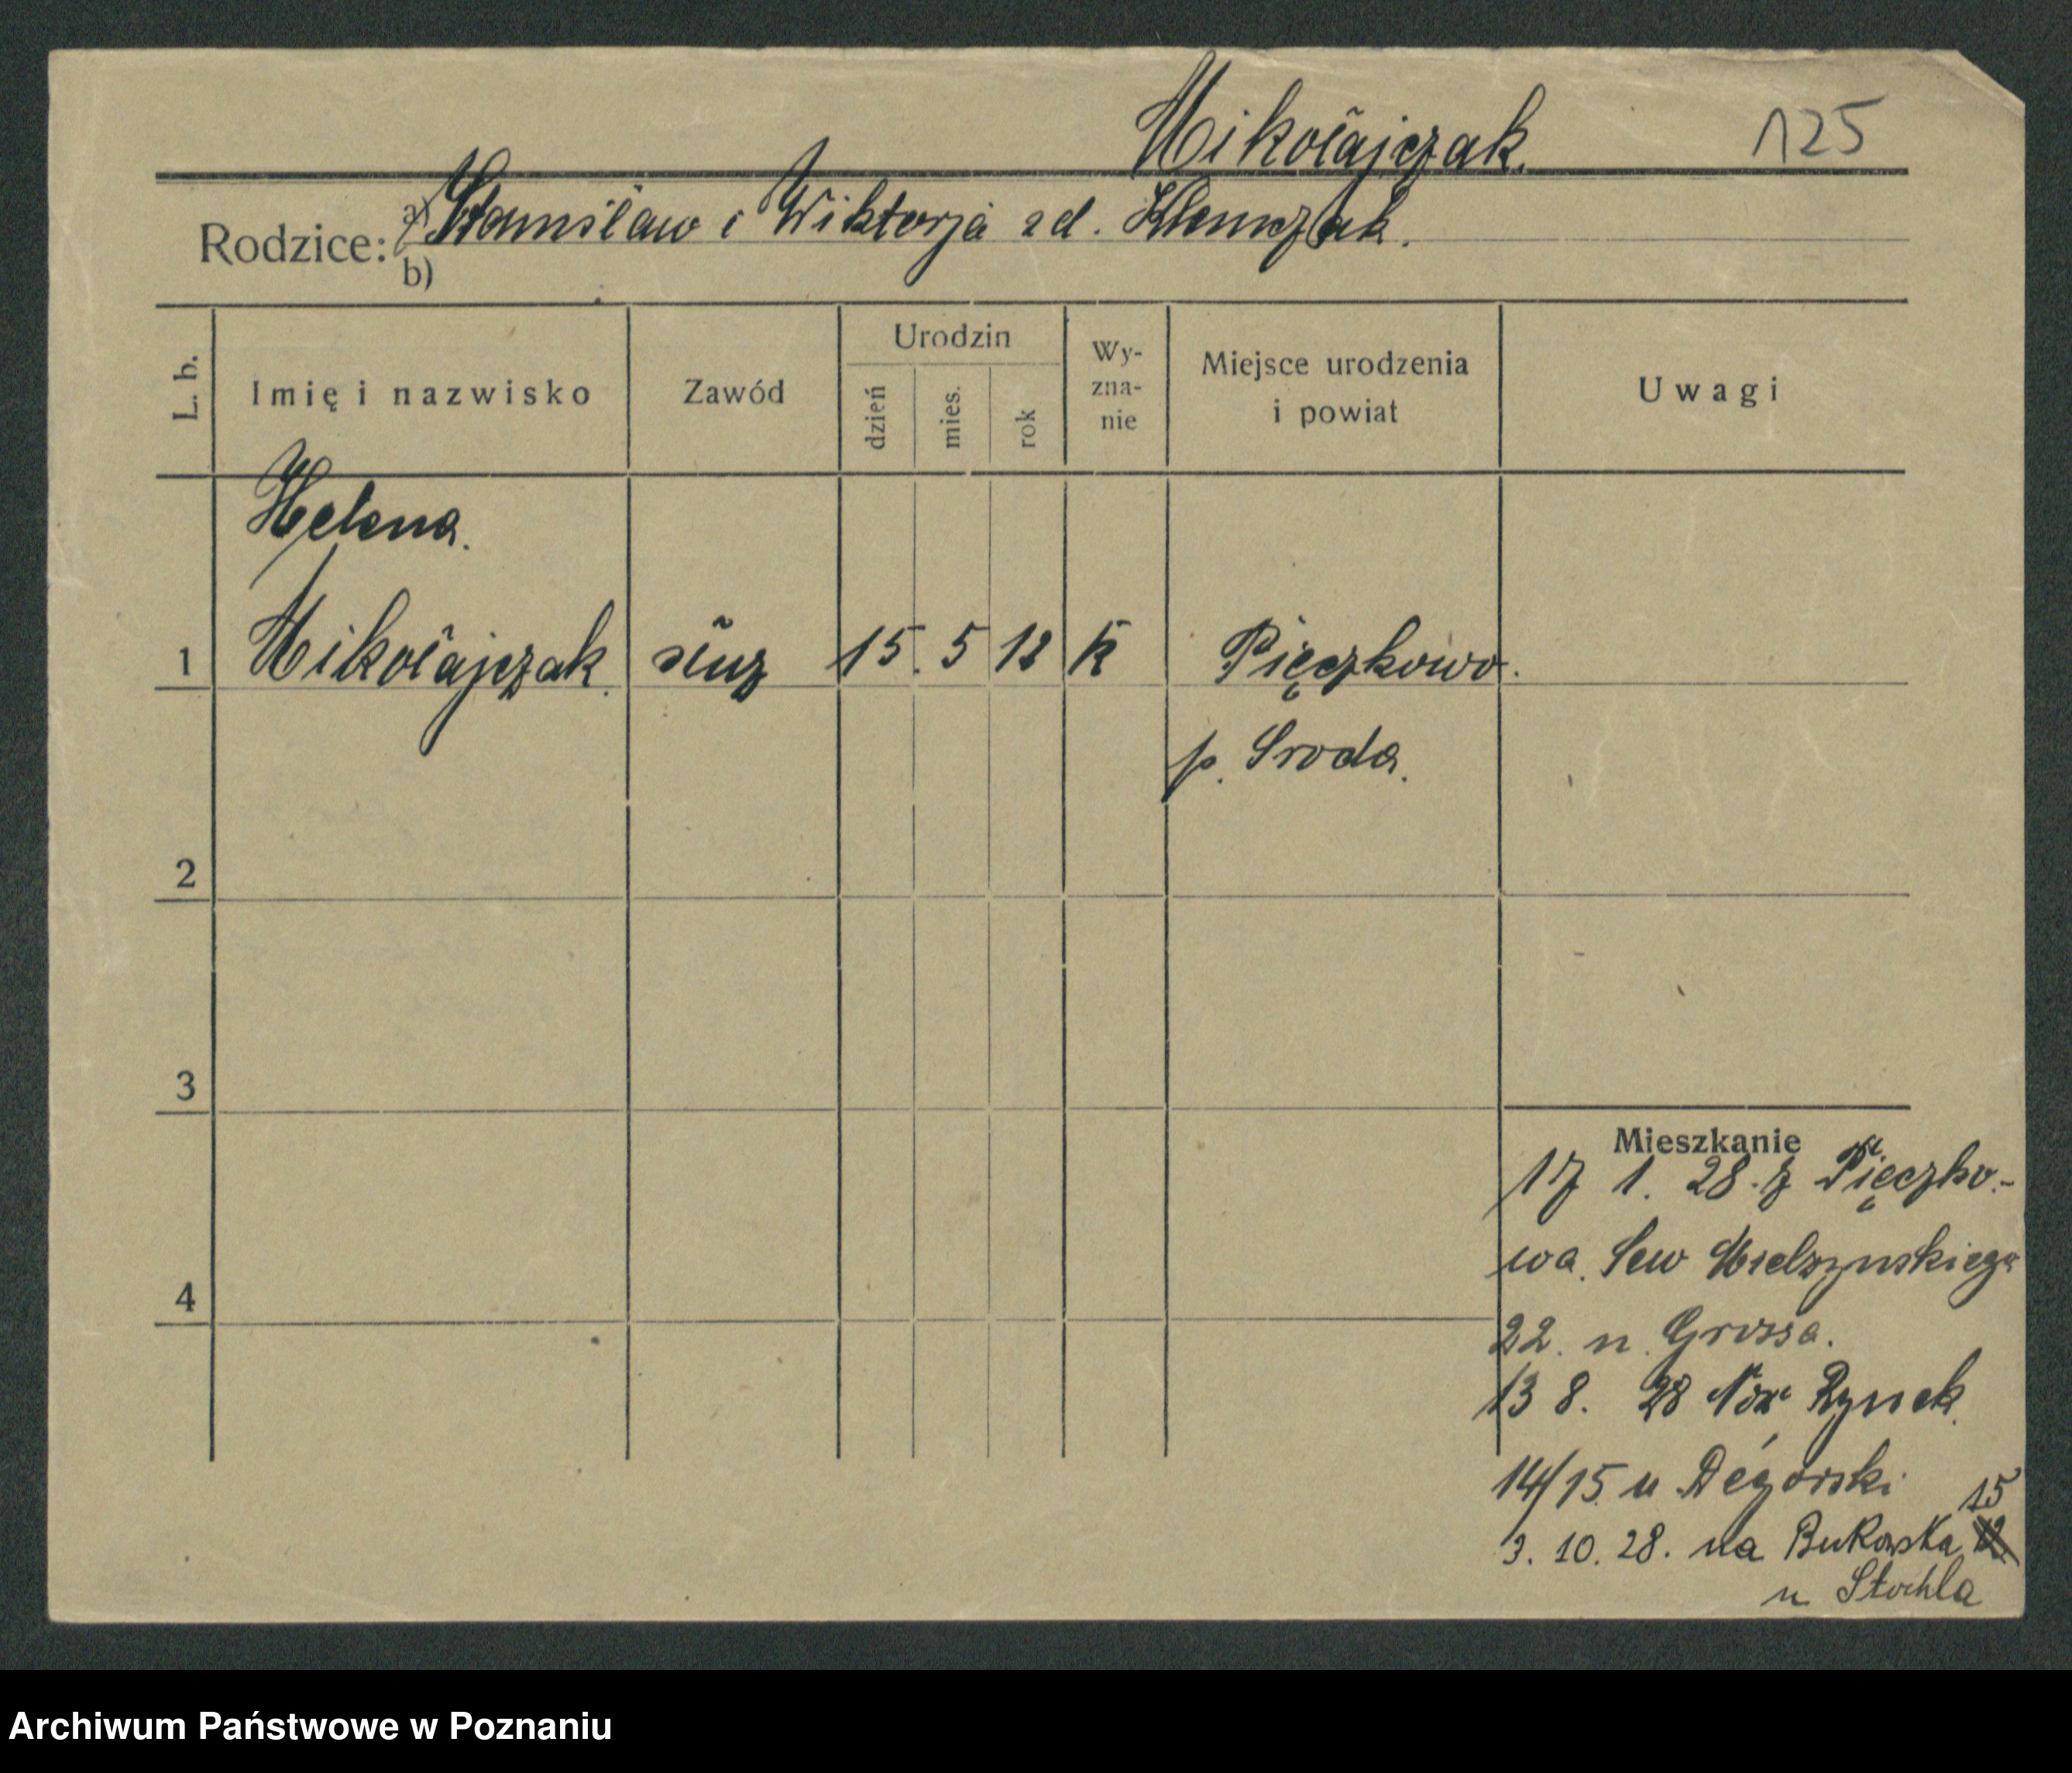 Mikołajczak. 125
Rodzice: a) Stanisław i Wiktorja zd. Klemczak.
b)
L. b. Imię i nazwisko Zawód Urodzin dzień mies. rok Wy-zna-nie Miejsce urodzenia i powiat Uwagi
Helena.
1 Mikołajczak. służ 15. 5 12 k Pięczkowo.
p. Sroda.
2
3
4
Mieszkanie
17 1. 28. z Pięczko-
wa. Sew Mielzynskiego
22. u. Grossa.
13 8. 28 Rynek.
14/15. u Degórski
3. 10. 28. na Bukowska 15
u Stochla
Archiwum Państwowe w Poznaniu